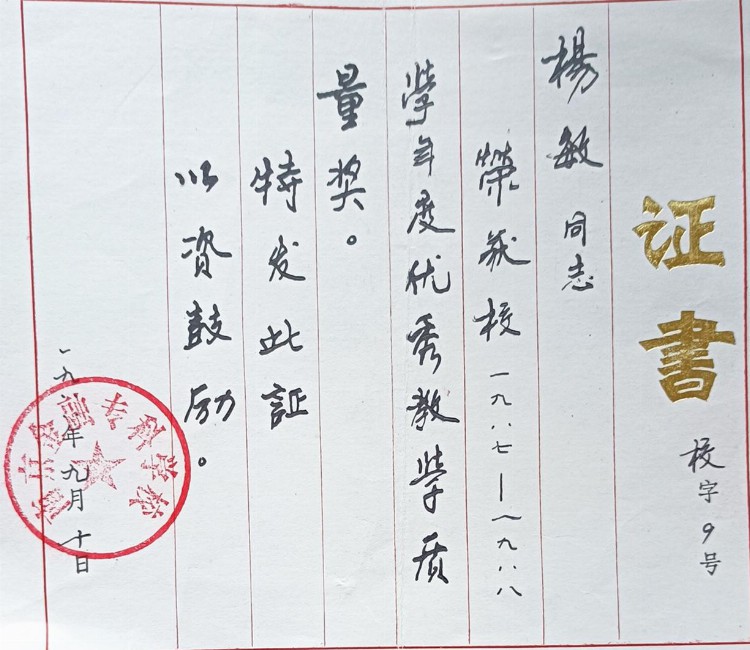 证書
校字9号
楊敏同志
榮获校一九八七—一九八八
學年度优秀教學质
量奖。
特发此証
以资鼓励。
一九八年九月十日
专科学校